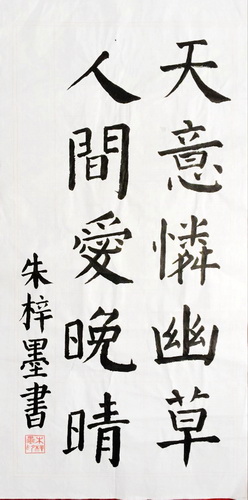 天意憐幽草
人間愛晚晴
朱梓墨書